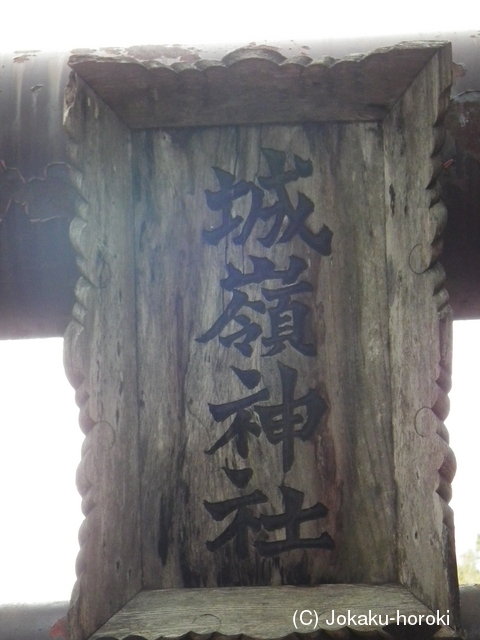 城嶺神社
(C) Jokaku-horoki